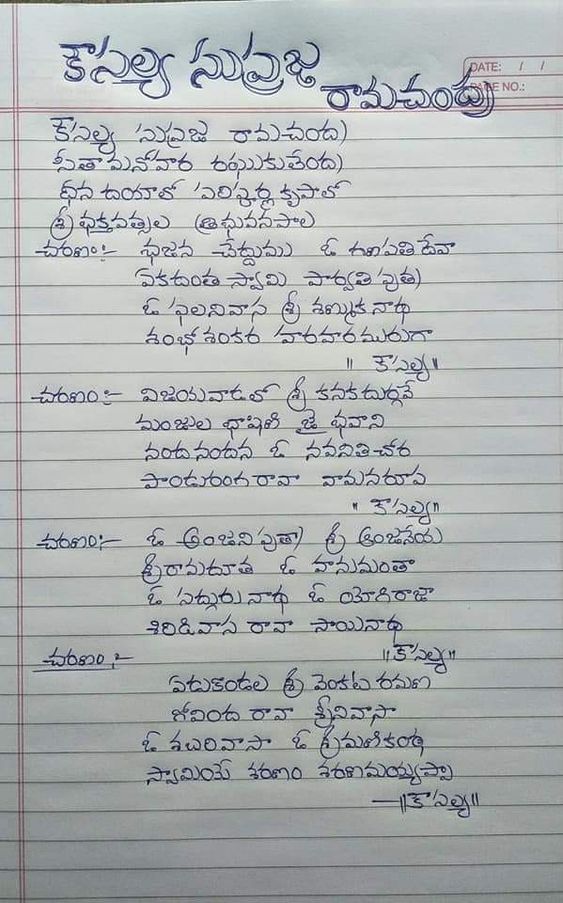 కౌసల్య సుప్రజ
రామచంద్ర
DATE: / /
PAGE NO.:
కౌసల్య సుప్రజ రామచంద్ర
సీతా మనోహర రఘుకుతేంద్ర
దీన దయాలో పరిపూర్ణ కృపాలో
శ్రీ భక్తవత్సల త్రిభువనపాల
చరణం:- భజన చేద్దుము ఓ గణపతి దేవా
ఏకదంత స్వామి పార్వతి పుత్ర
ఓ ఫలనివాస శ్రీ శణ్ముక నాథ
శంభో శంకర హరహర మురుగా
॥ కౌసల్య॥
చరణం:- విజయవాడలో శ్రీ కనకదుర్గవే
మంజుల భాషిణి జై భవాని
నంద నందన ఓ నవనితచోర
పాండురంగ రావా వామనరూప
" కౌసల్య"
చరణం:- ఓ అంజని పుత్రా శ్రీ ఆంజనేయ
శ్రీరామదూత ఓ హనుమంతా
ఓ సద్గురు నాథ ఓ యోగిరాజా
శిరిడివాస రావా సాయినాథ
॥కౌసల్య॥
చరణం:-
ఏడుకొండల శ్రీ వెంకట రమణ
గోవింద రావా శ్రీనివాసా
ఓ శబరివాసా ఓ శ్రీమణికంఠ
స్వామియే శరణం శరణమయ్యప్పా
—॥కౌసల్య॥